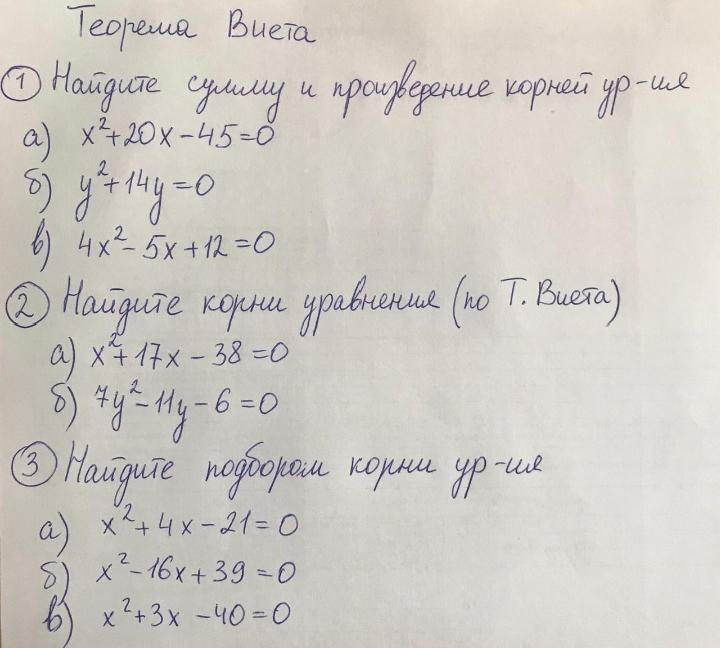 Теорема Виета
① Найдите сумму и произведение корней ур-ия
а) x²+20x-45=0
б) y²+14y=0
в) 4x²-5x+12=0
② Найдите корни уравнения (по Т. Виета)
а) x²+17x-38=0
б) 7y²-11y-6=0
③ Найдите подбором корни ур-ия
а) x²+4x-21=0
б) x²-16x+39=0
в) x²+3x-40=0